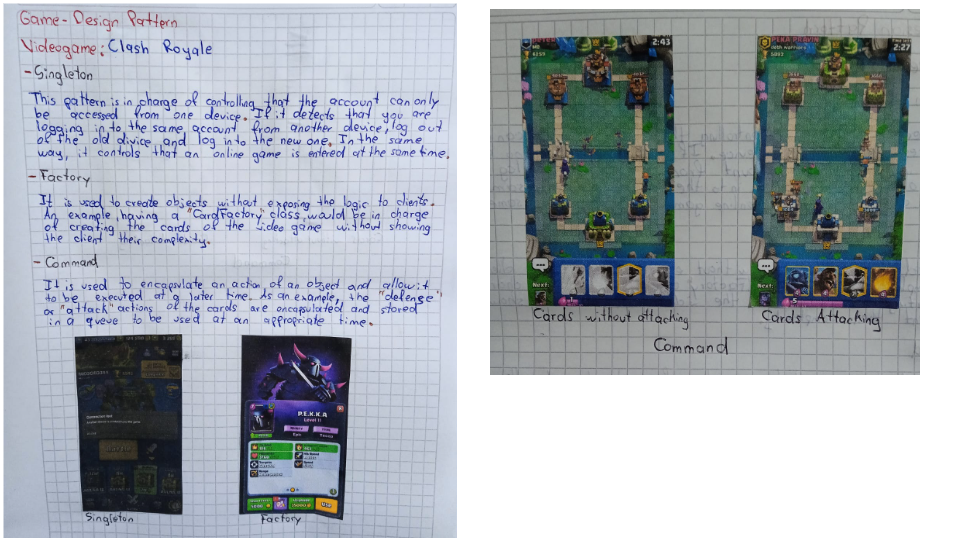 Game-Design Pattern
Videogame: Clash Royale
- Singleton
This pattern is in charge of controlling that the account can only
be accessed from one device. If it detects that you are
logging in to the same account from another device, log out
of the old divice, and log into the new one. In the same
way, it controls that an online game is entered at the same time.
- Factory
It is used to create objects without exposing the logic to clients.
An example, having a "CardFactory" class, would be in charge
of creating the cards of the video game without showing
the client their complexity.
- Command
It is used to encapsulate an action of an object and allow it
to be executed at a later time. As an example, the "defense"
or "attack" actions of the cards are encapsulated and stored
in a queue to be used at an appropriate time.
P.E.K.K.A
Level 11
Use
Singleton
Factory
2:43
Next:
Cards without attacking
PEKA
2:27
Next:
5
Cards Attacking
Command